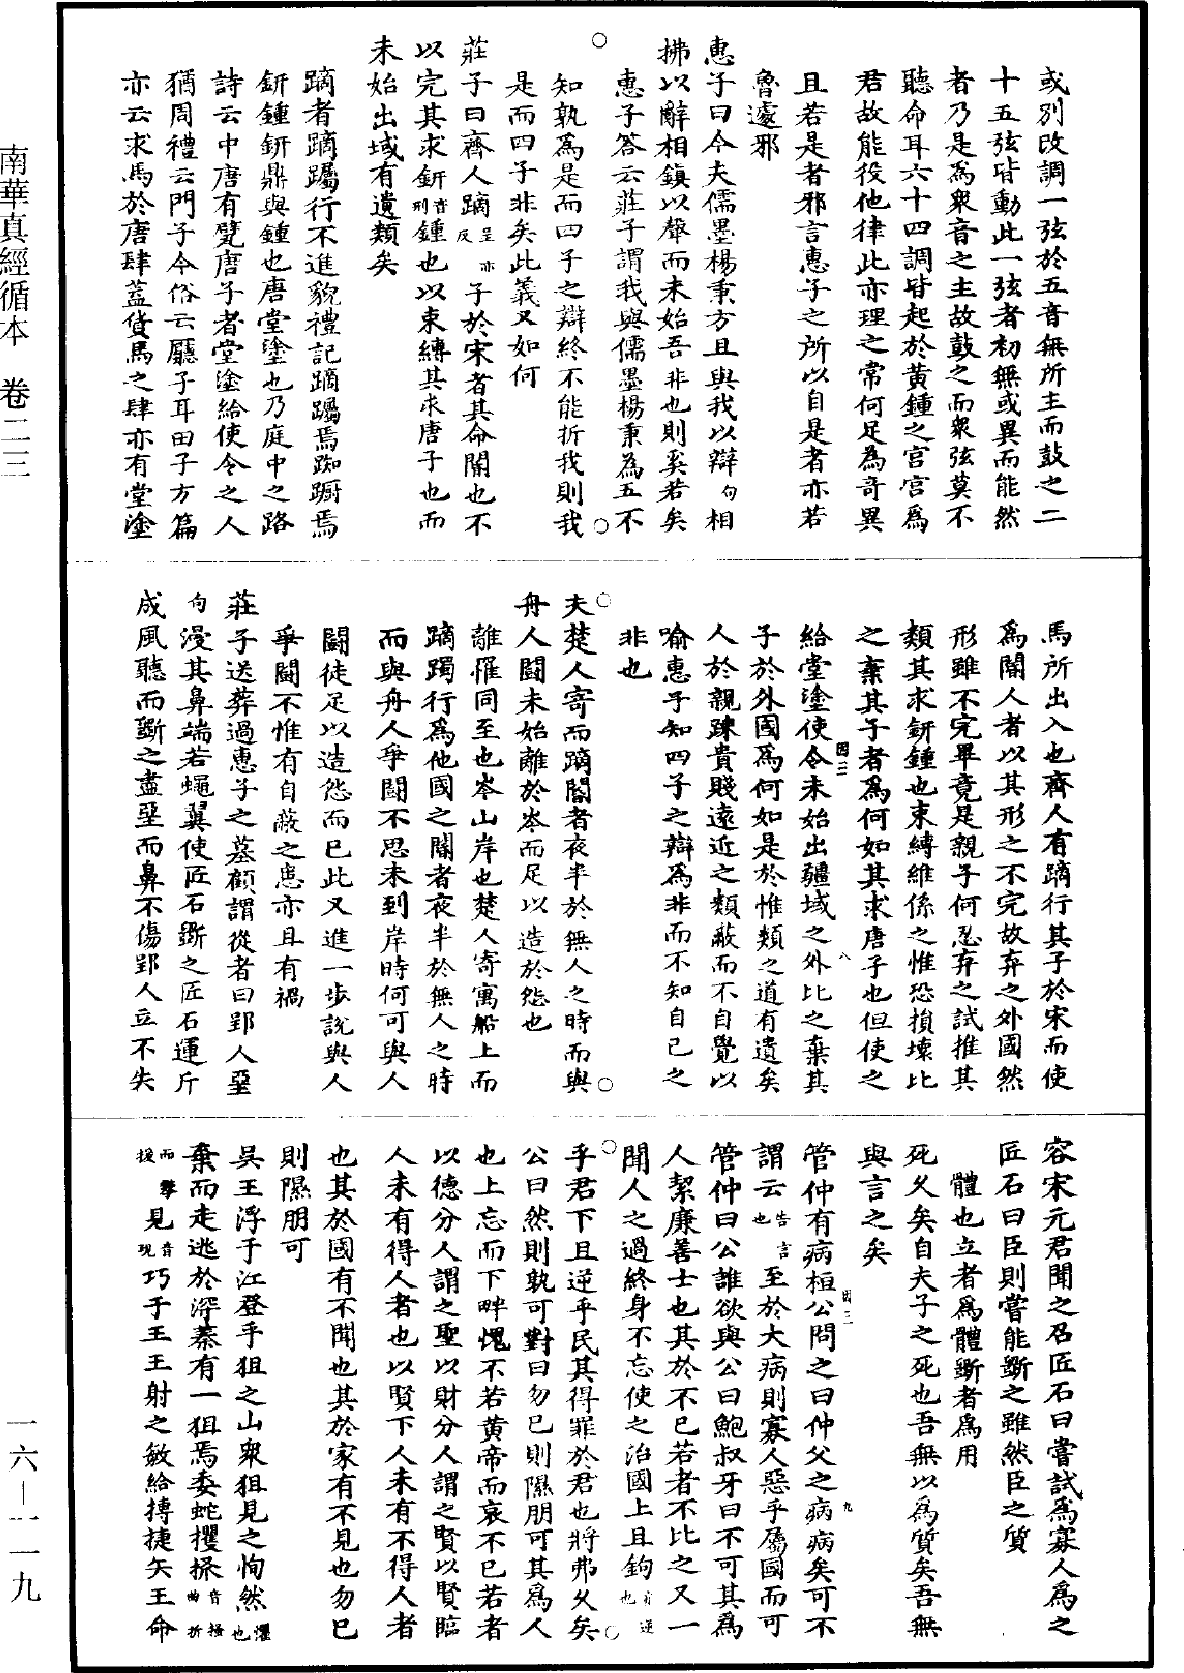 南華真經循本　卷二三
一六—一一九
或別改調一弦於五音無所主而鼓之二
十五弦皆動此一弦者初無或異而能然
者乃是為衆音之主故鼓之而衆弦莫不
聽命耳六十四調皆起於黃鍾之宮宮為
君故能役他律此亦理之常何足為奇異
且若是者邪言惠子之所以自是者亦若
魯遽邪
惠子曰今夫儒墨楊秉方且與我以辯句相
拂以辭相鎮以聲而未始吾非也則奚若矣
惠子答云莊子謂我與儒墨楊秉為五不
知孰為是而四子之辯終不能折我則我
是而四子非矣此義又如何
莊子曰齊人蹢呈亦反子於宋者其命閽也不
以完其求鈃音刑鍾也以束縛其求唐子也而
未始出域有遺類矣
蹢者蹢躅行不進貌禮記蹢躅焉踟躕焉
鈃鍾鈃鼎與鍾也唐堂塗也乃庭中之路
詩云中唐有甓唐子者堂塗給使令之人
猶周禮云門子今俗云廳子耳田子方篇
亦云求馬於唐肆蓋貨馬之肆亦有堂塗
馬所出入也齊人有蹢行其子於宋而使
為閽人者以其形之不完故弃之外國然
形雖不完畢竟是親子何忍弃之試推其
類其求鈃鍾也束縛維係之惟恐損壞比
之棄其子者為何如其求唐子也但使之
給堂塗使令未始出疆域之外比之棄其
子於外國為何如是於惟類之道有遺矣
人於親踈貴賤遠近之類蔽而不自覺以
喻惠子知四子之辯為非而不知自己之
非也
夫楚人寄而蹢閽者夜半於無人之時而與
舟人鬭未始離於岑而足以造於怨也
離罹同至也岑山岸也楚人寄寓船上而
蹢躅行為他國之閽者夜半於無人之時
而與舟人爭鬭不思未到岸時何可與人
鬭徒足以造怨而已此又進一步說與人
爭鬭不惟有自蔽之患亦且有禍
莊子送葬過惠子之墓顧謂從者曰郢人堊
句漫其鼻端若蠅翼使匠石斲之匠石運斤
成風聽而斲之盡堊而鼻不傷郢人立不失
容宋元君聞之召匠石曰嘗試為寡人為之
匠石曰臣則嘗能斲之雖然臣之質
體也立者為體斲者為用
死久矣自夫子之死也吾無以為質矣吾無
與言之矣
管仲有病桓公問之曰仲父之病病矣可不
謂云告言也至於大病則寡人惡乎屬國而可
管仲曰公誰欲與公曰鮑叔牙曰不可其為
人絜廉善士也其於不已若者不比之又一
聞人之過終身不忘使之治國上且鉤音逆也
乎君下且逆乎民其得罪於君也將弗久矣
公曰然則孰可對曰勿已則隰朋可其為人
也上忘而下畔愧不若黃帝而哀不已若者
以德分人謂之聖以財分人謂之賢以賢臨
人未有得人者也以賢下人未有不得人者
也其於國有不聞也其於家有不見也勿已
則隰朋可
吳王浮于江登乎狙之山衆狙見之恂然懼也
棄而走逃於深蓁有一狙焉委蛇攫搔音搔曲折
而援攀見音現巧于王王射之敏給搏捷矢王命